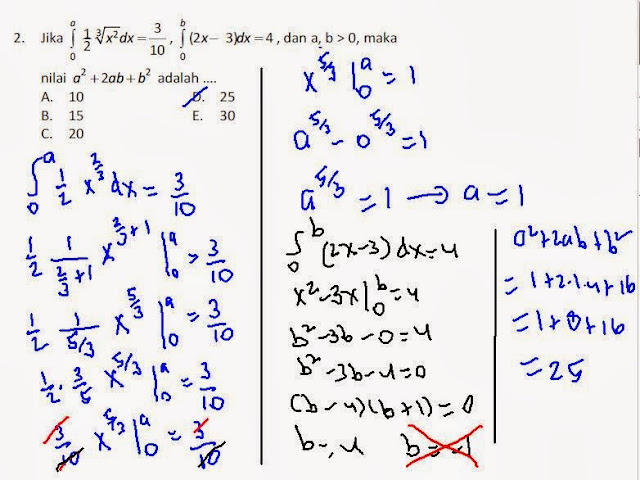 2. Jika ∫₀ᵃ 1/2 ∛x² dx = 3/10 , ∫₀ᵇ (2x − 3)dx = 4 , dan a, b > 0, maka
nilai a² + 2ab + b² adalah ....
A. 10 D. 25
B. 15 E. 30
C. 20
∫₀ᵃ 1/2 x^(2/3) dx = 3/10
1/2 1/(2/3 + 1) x^(2/3 + 1) |₀ᵃ = 3/10
1/2 1/(5/3) x^(5/3) |₀ᵃ = 3/10
1/2 · 3/5 x^(5/3) |₀ᵃ = 3/10
3/10 x^(5/3) |₀ᵃ = 3/10
x^(5/3) |₀ᵃ = 1
a^(5/3) − 0^(5/3) = 1
a^(5/3) = 1 → a = 1
∫₀ᵇ (2x−3) dx = 4
x² − 3x |₀ᵇ = 4
b² − 3b − 0 = 4
b² − 3b − 4 = 0
(b − 4)(b + 1) = 0
b = 4 b = −1
a² + 2ab + b²
= 1 + 2·1·4 + 16
= 1 + 8 + 16
= 25